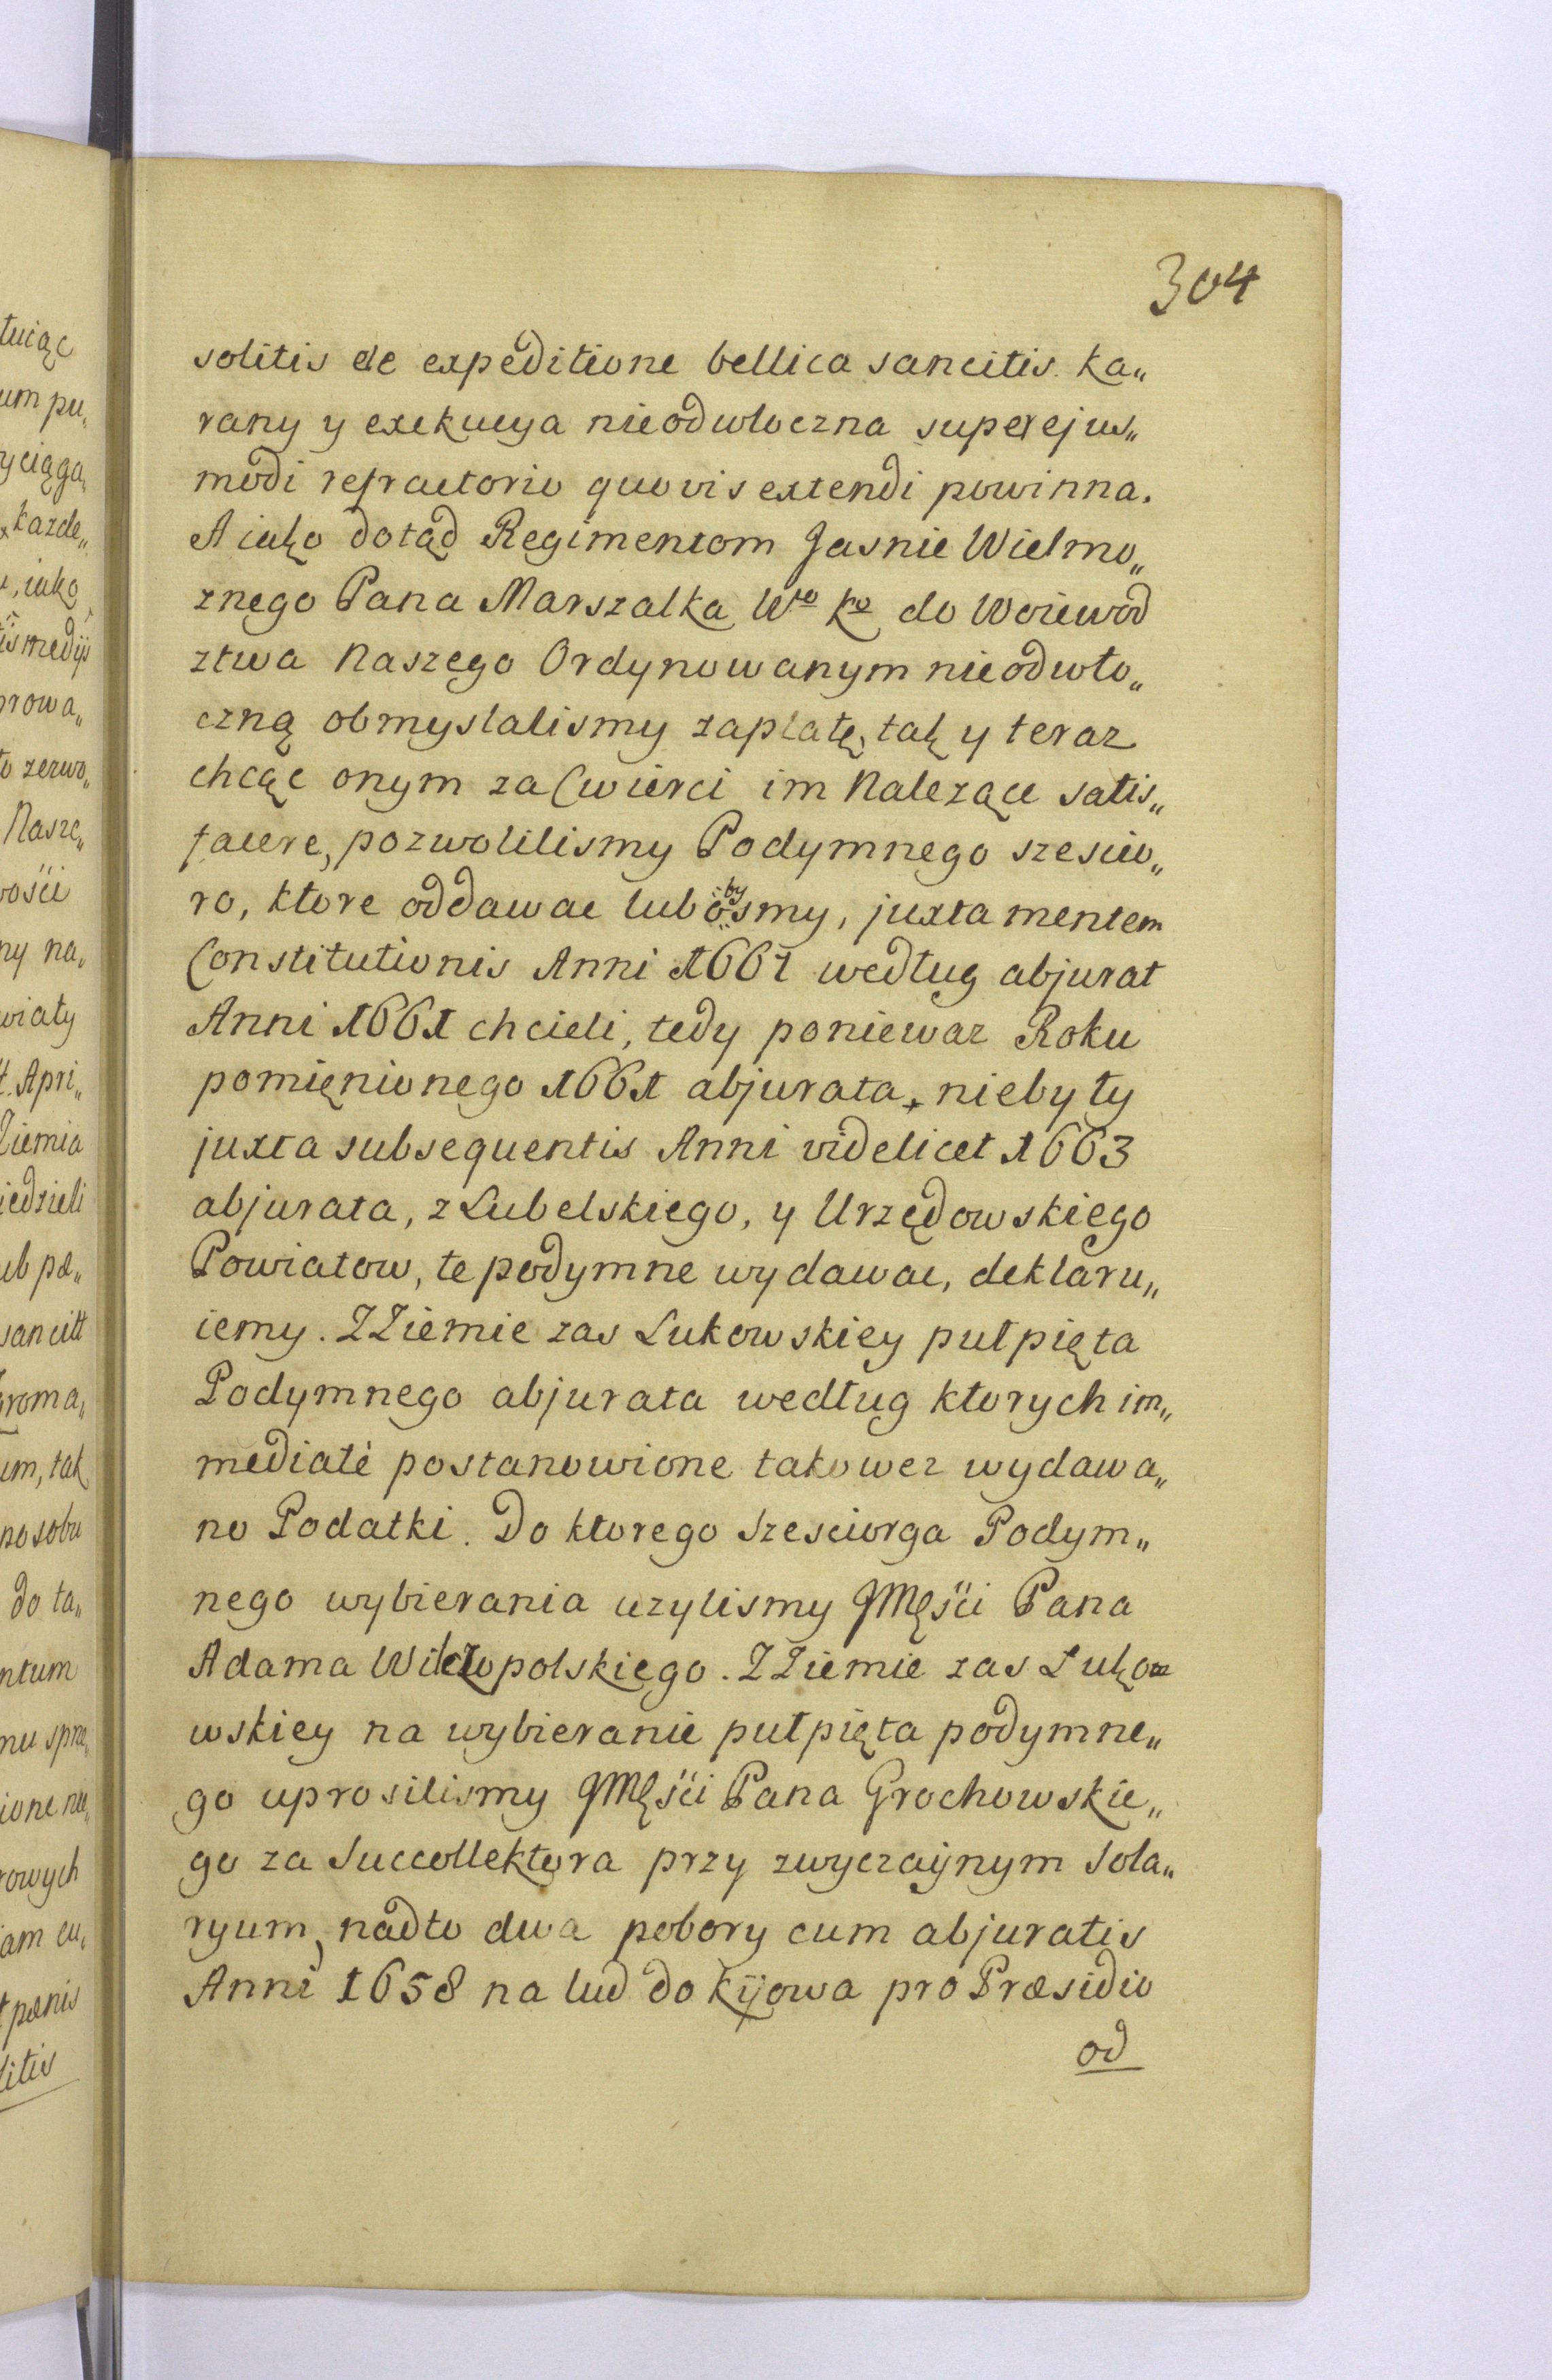 304
solitis de expeditione bellica sancitis. ka„
rany y exekucya nieodwłoczna super ejus„
modi refractorio quovis extendi powinna.
A iako dotąd Regimentom Jasnie Wielmo„
znego Pana Marszalka Wgo Ko do Woiewod
ztwa Naszego Ordynowanym nieodwło„
czną obmyslalismy zapłatę, tak y teraz
chcąc onym za Cwierci im Nalezące satis„
facere, pozwolilismy Podymnego szescio„
ro, ktore oddawac lubobysmy, juxta mentem
Constitutionis Anni 1661 według abjurat
Anni 1661 chcieli, tedy poniewaz Roku
pomięnionego 1661 abjurata + niebyły
juxta subsequentis Anni videlicet 1663
abjurata, z Lubelskiego, y Urzędowskiego
Powiatow, te podymne wydawac, deklaru„
iemy. Z Ziemie zas Łukowskiey pułpięta
Podymnego abjurata według ktorych im„
mediatè postanowione takowez wydawa„
no Podatki. Do ktorego szesciorga Podym„
nego wybierania uzylismy JMęści Pana
Adama Wilczopolskiego. Z Ziemie zas Łuko
wskiey na wybieranie pułpięta podymne„
go uprosilismy JMęści Pana Grochowskie„
go za Succollektora przy zwyczaÿnym Sola„
ryum, nadto dwa pobory cum abjuratis
Anni 1658 na lud do Kijowa pro Præsidio
od
tuiąc
um pu„
yciąga„
kazde„
iako
is medijs
rowa„
to zerwo„
Nasze„
ości
ny na„
wiaty
Apri„
Ziemia
iedzieli
ub pæ„
sancitt
roma„
um, tak
posobu
do ta„
ntum
mu spra„
ione na„
rowych
iam cu„
t pænis
litis